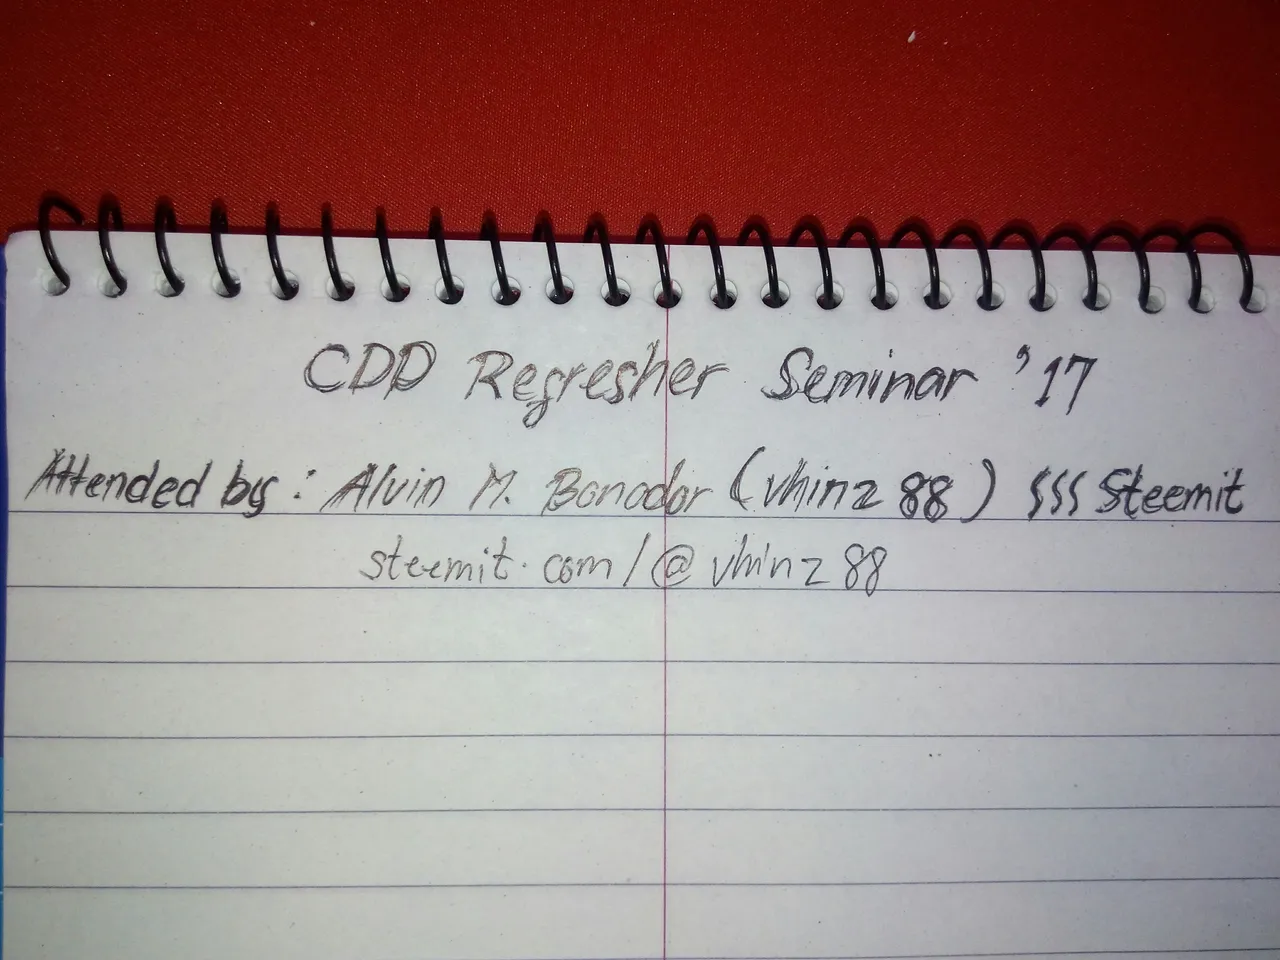 CDD Regresher Seminar '17
Attended by: Alvin M. Bonodor (vhinz 88) SSS Steemit
steemit.com/@vhinz88